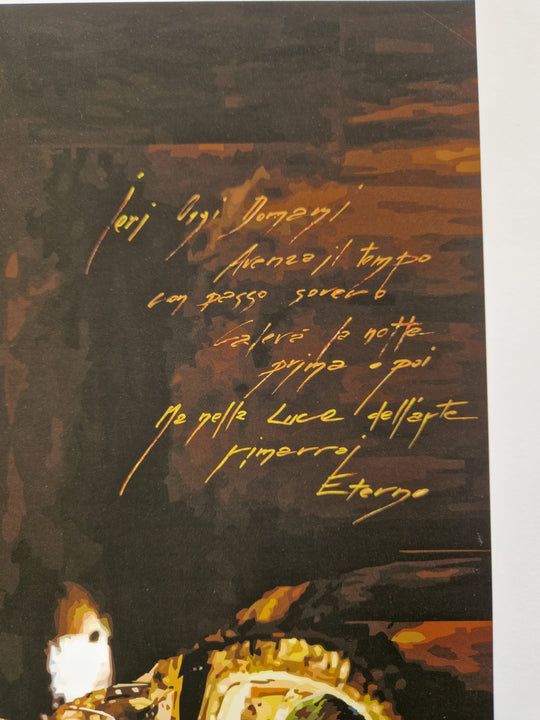 Ieri Oggi Domani
Avanza il tempo
con passo severo
Calerà la notte
prima o poi
Ma nella Luce dell'arte
rimarrai
Eterno